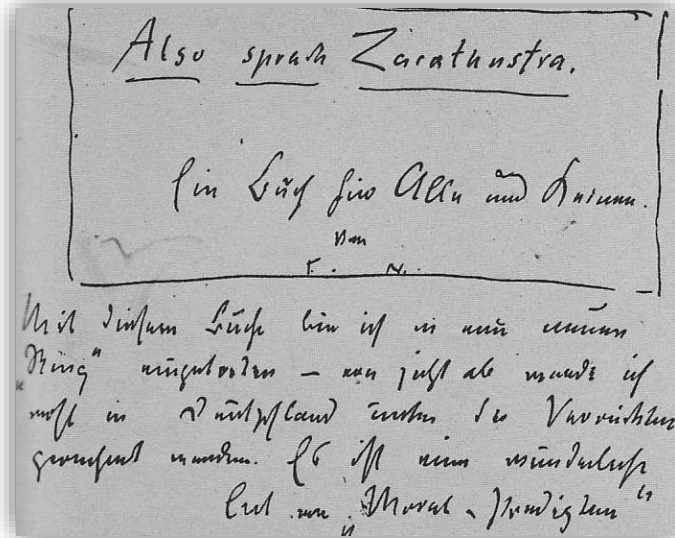 Also sprach Zarathustra.
Ein Buch für Alle und Keinen.
Von
F. N.
Mit diesem Buche bin ich in einen neuen
„Ring“ eingetreten — von jetzt ab werde ich
wohl in Deutschland unter die Verrückten
gerechnet werden. Es ist eine wunderliche
Art von „Moral-Predigten“